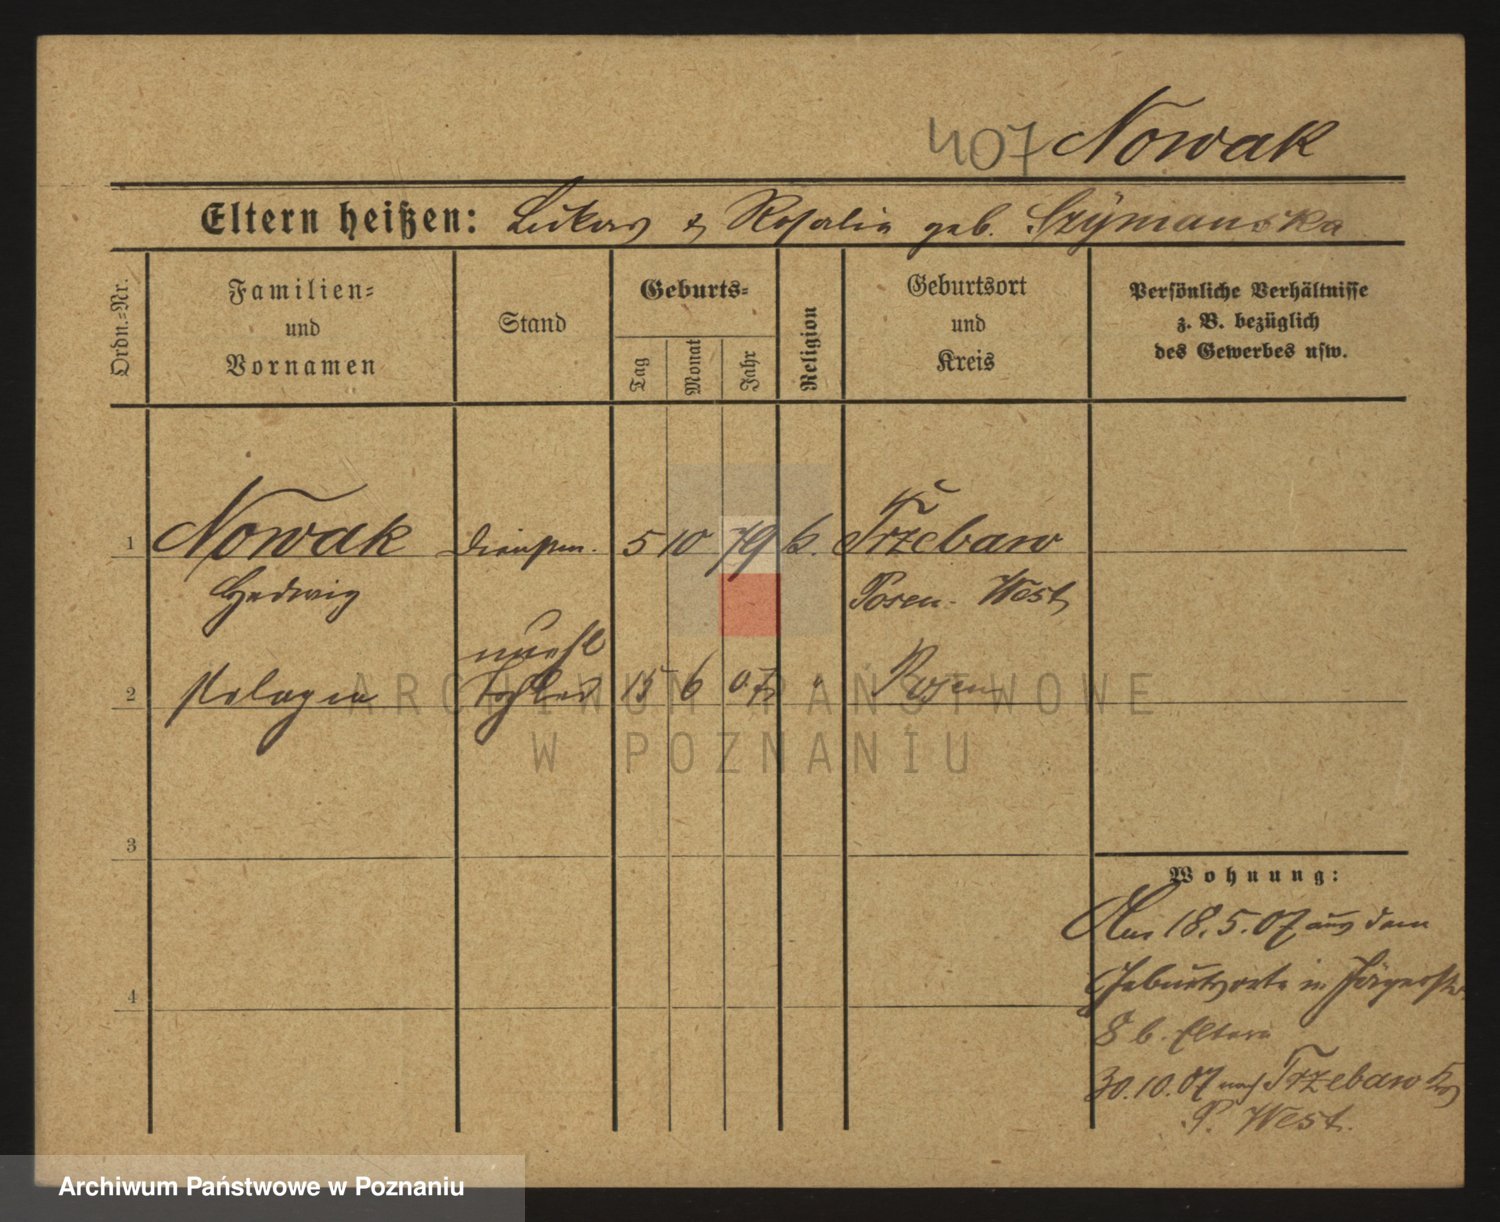 407 Nowak
Eltern heißen: Lukas & Rosalie geb. Szymanska
Ordn.-Nr.
Familien-
und
Vornamen
Stand
Geburts-
Tag
Monat
Jahr
Religion
Geburtsort
und
Kreis
Persönliche Verhältnisse
z. B. bezüglich
des Gewerbes usw.
1 Nowak Dienstm. 5 10 79 k. Trzebaw
Hedwig Posen-West
unehl
2 Pelagia Tochter 15 6 07 " Posen
ARCHIWUM PAŃSTWOWE
W POZNANIU
3
Wohnung:
Am 18.5.07 aus dem
4
Geburtsorte in
8 b. Eltern
30.10.07 nach Trzebaw
P. West.
Archiwum Państwowe w Poznaniu